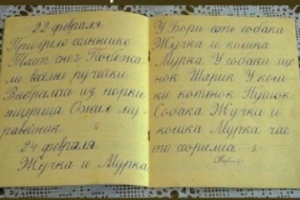 22 февраля.
Пригрело солнышко.
Таит снег. Побежа-
ли
ручейки.
Выбралась из норки
ящерица. Ожил му-
равейник.
24 февраля.
Жучка и Мурка
У Бори есть собака
Жучка и кошка
Мурка. У собаки ще-
нок Шарик. У кош-
ки котёнок Пушок.
Собака Жучка и
кошка Мурка час-
то